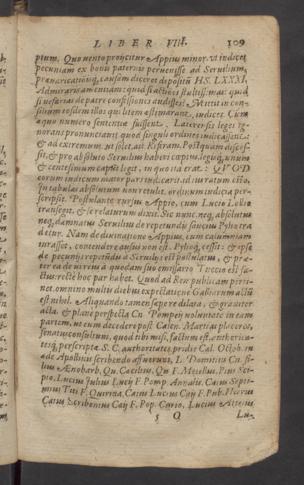 LIBER VIII. 109
ptum. Quo mento proijcitur Appius minor, vt indicet
pecuniam ex bonis paternis peruenisse ad Seruilium,
præuaricationisq, causa diceret depositum HS. LXXXI.
Admiraris amentiam: quod si actionis stultissimas: quod
si nefarias de patre confessiones audisses. Mittit in con-
silium eosdem illos qui litem æstimarant, iudices. Cum
æquo numero sententiæ fuissent. Laterensis leges ig-
norans pronunciauit, quod singuli ordines iudicassent:
& ad extremum, vt solet, ait Rescribam. Postquam disces-
sit, & pro absoluto Seruilius haberi cœpit, legisq, vnum
& centesimum caput legit, in quo ita erat: QVOD
eorum iudicum maior pars indicarit, id ius ratum esto,
in tabulas absolutum non retulit, ordinum iudicia per-
scripsit. Postulante rursus Appio, cum Lucio Lollio
transegit, & se relaturum dixit. Sic nunc neq, absolutus
neq, damnatus Seruilius de repetundis saucius Pilio tra-
detur. Nam de diuinatione Appius, cum calumniam
iurasset, contendere ausus non est, Pilioq, cessit: & ipse
de pecunijs repetundis à Seruilijs est postulatus, & præ-
terea de vi reus à quodam suo emissario Tettio est fa-
ctus. recte hoc par habet. Quod ad Rem publicam perti-
net, omnino multis diebus expectatione Galliarum actum
est nihil. Aliquando tamen sæpe re dilata, & grauiter
acta, & plane perspecta Cn. Pompeij voluntate in eam
partem, vt eum decedere post Calen. Martias placeret,
senatusconsultum, quod tibi misi, factum est, auctorita-
tesq, perscriptæ. S. C. authoritates, pridie Cal. Octob. in
æde Apollinis scribendo affuerunt, L. Domitius Cn. fi-
lius Ænobarb. Qu. Cæcilius, Qu. F. Metellus, Pius Sci-
pio, Lucius Iulius Lucij F. Pomp. Annalis. Caius Septi-
mius Titi F. Quirina, Caius Lucius Caij F. Pub. Hirrus
Caius Scribonius Caij F. Pop. Curio, Lucius Atteius
5 O Lu-